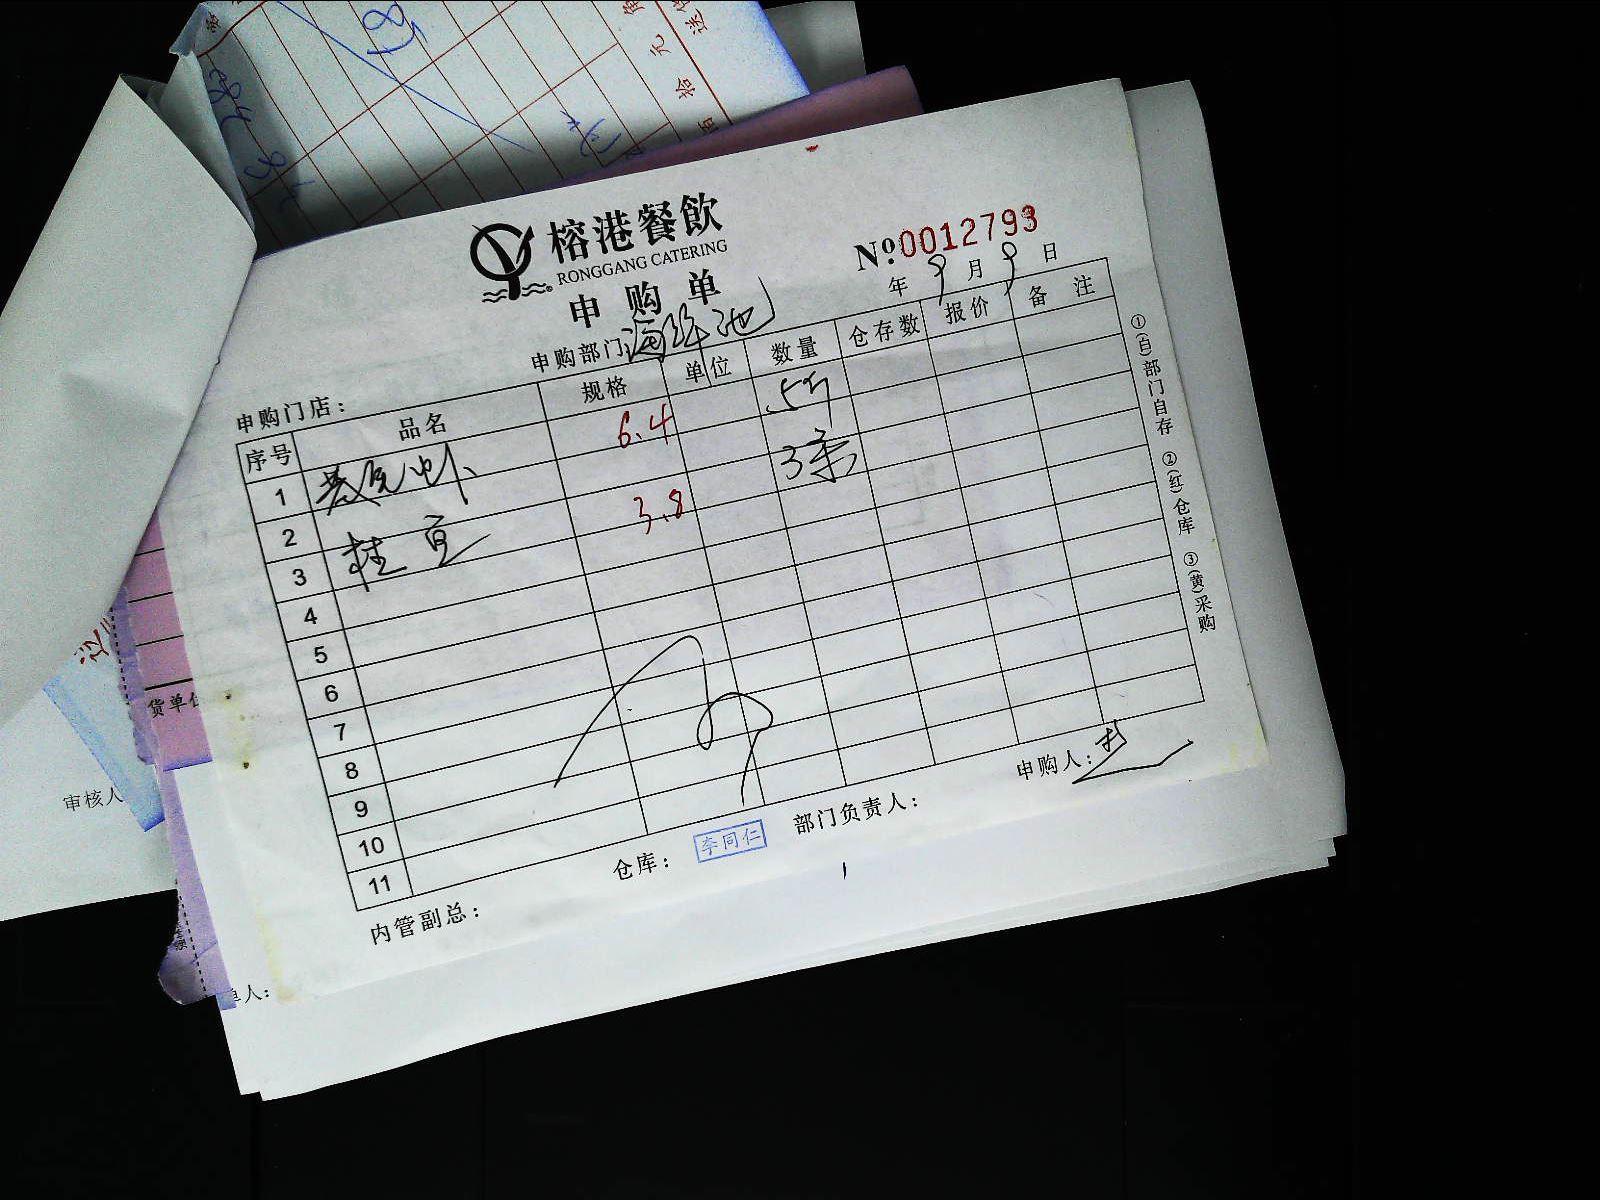 榕港餐飲
RONGGANG CATERING
申购单
№0012793
年 9 月 9 日
申购门店：
申购部门 海鲜池
序号 品名 规格 单位 数量 仓存数 报价 备注
1 6.4 5斤
2 3条
3 桂鱼 3.8
4
5
6
7
8
9
10
11
仓库： 李同仁 部门负责人： 申购人：
内管副总：
①(白)部门自存 ②(红)仓库 ③(黄)采购
货单位
审核人
单人：
拾
元
角